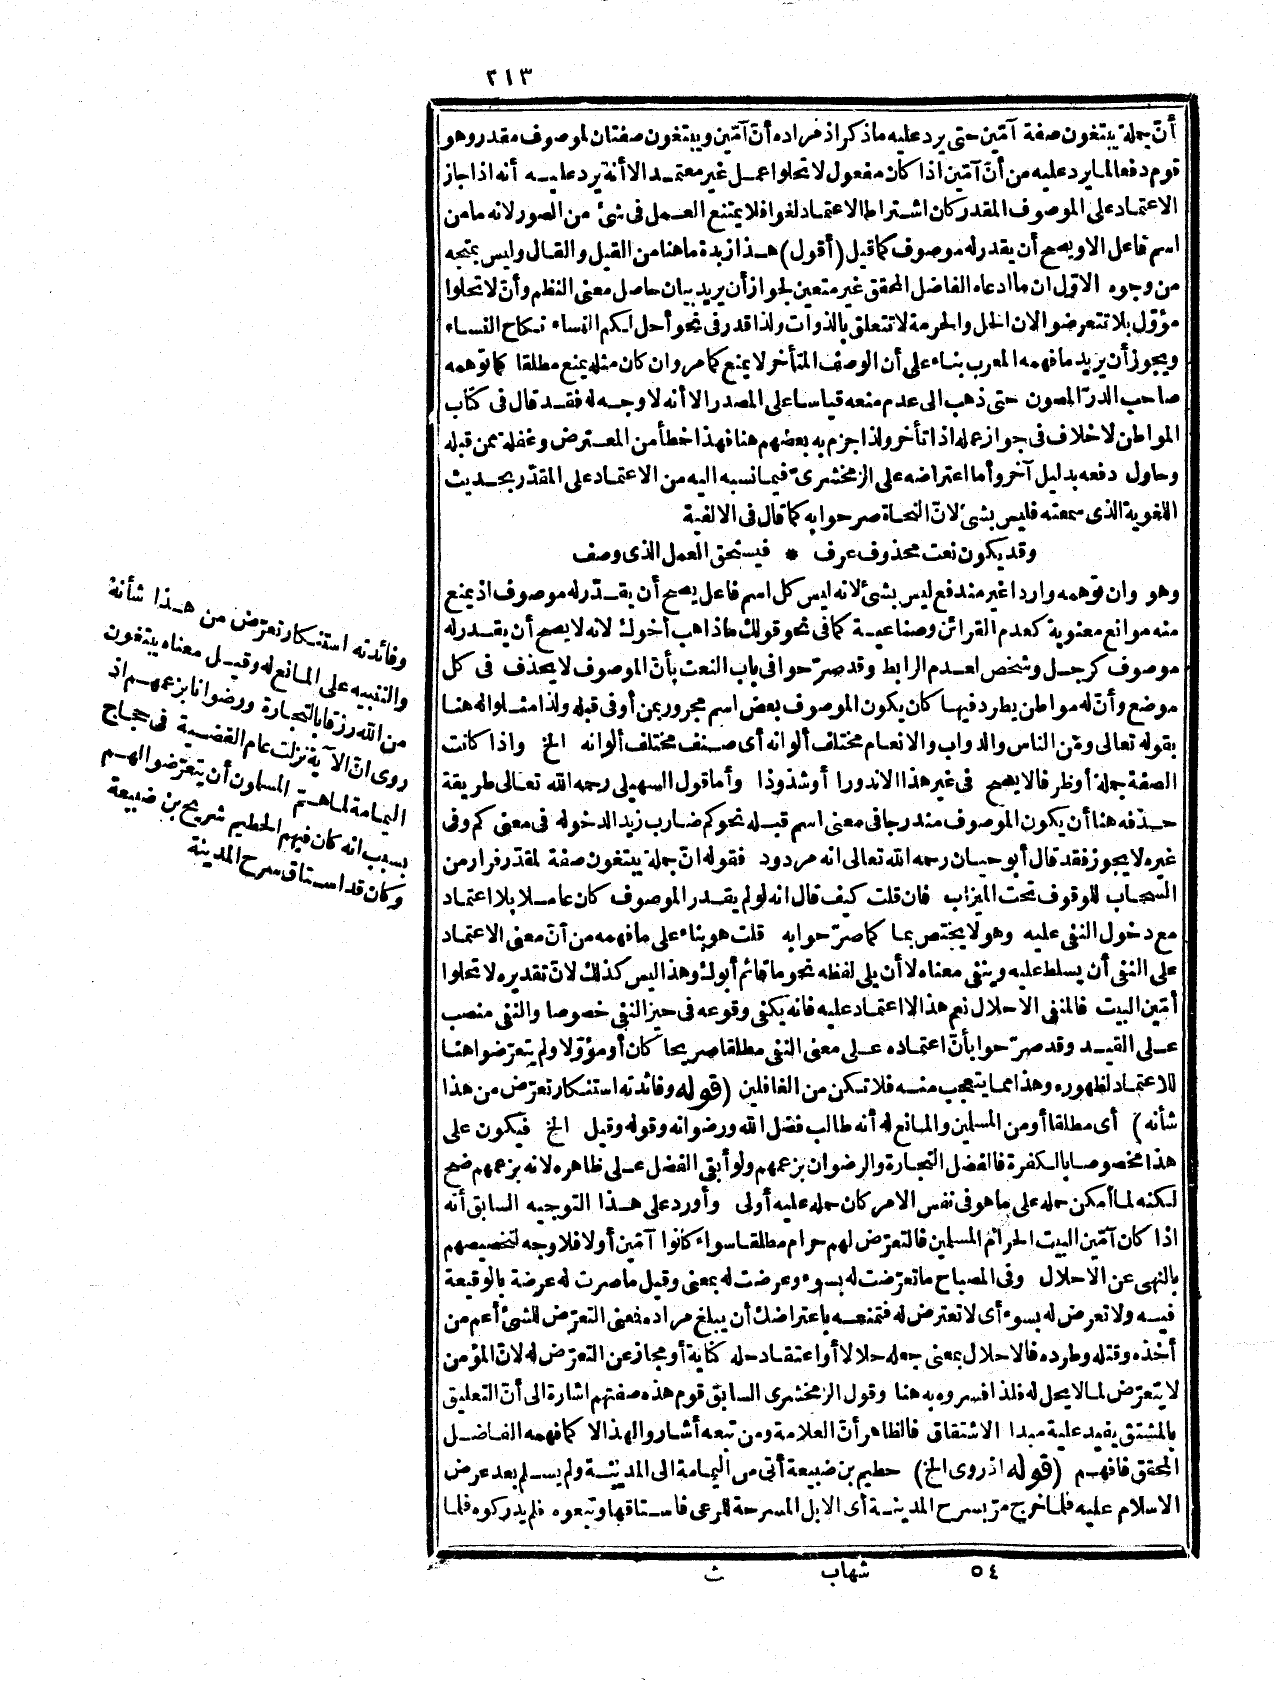 ٢١٣
أنّ جملة يبتغون صفة آمّين حتى يرد عليه ما ذكر اذ مراده أنّ آمّين ويبتغون صفتان لموصوف مقدر وهو
قوم دفعا لما يرد عليه من أنّ آمّين اذا كان مفعول لا تحلوا عمل غير معتمد الا أنه يرد عليه أنه اذا جاز
الاعتماد على الموصوف المقدر كان اشتراط الاعتماد لغوا فلا يمتنع العمل فى شئ من الصور لانه ما من
اسم فاعل الا ويصح أن يقدر له موصوف كما قيل (أقول) هذا زبدة ما هنا من القيل والقال وليس بمتجه
من وجوه الاوّل ان ما ادعاه الفاضل المحقق غير متعين لجواز أن يريد بيان حاصل معنى النظم وأنّ لا تحلوا
مؤوّل بلا تتعرضوا لان الحل والحرمة لا تتعلق بالذوات ولذا قدر فى نحو أحل لكم النساء نكاح النساء
ويجوز أن يريد ما فهمه المعرب بناء على أن الوصف المتأخر لا يمنع كما مر وان كان مثله يمنع مطلقا كما توهمه
صاحب الدرّ المصون حتى ذهب الى عدم منعه قياسا على المصدر الا أنه لا وجه له فقد قال فى كتاب
المواطن لا خلاف فى جواز عمله اذا تأخر ولذا جزم به بعضهم هنا فهذا خطأ من المعترض وغفلة ممن قبله
وحاول دفعه بدليل آخر وأما اعتراضه على الزمخشرىّ فيما نسبه اليه من الاعتماد على المقدّر بحديث
اللغوية الذى سمعته فليس بشئ لانّ النحاة صرحوا به كما قال فى الالفية
وقد يكون نعت محذوف عرف * فيستحق العمل الذى وصف
وهو وان توهمه واردا غير مندفع ليس بشئ لانه ليس كل اسم فاعل يصح أن يقدّر له موصوف اذ يمنع
منه موانع معنوية كعدم القرائن وصناعية كما فى نحو قولك ما ذاهب أخوك لانه لا يصح أن يقدر له
موصوف كرجل وشخص لعدم الرابط وقد صرّحوا فى باب النعت بأنّ الموصوف لا يحذف فى كل
موضع وأنّ له مواطن يطرد فيها كان يكون الموصوف بعض اسم مجرور بمن أو فى قبله ولذا مثلوا له هنا
بقوله تعالى ومن الناس والدواب والانعام مختلف ألوانه أى صنف مختلف ألوانه الخ واذا كانت
الصفة جملة أو ظرفا لا يصح فى غير هذا الا ندورا أو شذوذا وأما قول السهيلى رحمه الله تعالى طريقة
حذفه هنا أن يكون الموصوف مندرجا فى معنى اسم قبله نحو كم ضارب زيد الدخوله فى معنى كم وفى
غيره لا يجوز فقد قال أبو حيان رحمه الله تعالى انه مردود فقوله انّ جملة يبتغون صفة لمقدّر فرار من
السحاب للوقوف تحت الميزاب فان قلت كيف قال انه لو لم يقدر الموصوف كان عاملا بلا اعتماد
مع دخول النفى عليه وهو لا يختص بما كما صرّحوا به قلت هو بناء على ما فهمه من أنّ معنى الاعتماد
على النفى أن يسلط عليه وينفى معناه لا أن يلى لفظه نحو ما قائم أبوك وهذا ليس كذلك لانّ تقديره لا تحلوا
آمّين البيت فالمنفى الاحلال نعم هذا لا اعتماد عليه فانه يكفى وقوعه فى حيز النفى خصوصا والنفى منصب
على القيد وقد صرّحوا بأنّ اعتماده على معنى النفى مطلقا صريحا كان أو مؤوّلا ولم يتعرّضوا هنا
للاعتماد لظهوره وهذا مما يتعجب منه فلا تكن من الغافلين (قوله وفائدته استنكار تعرّض من هذا
شأنه) أى مطلقا أو من المسلمين والمانع له أنه طالب فضل الله ورضوانه وقوله وقيل الخ فيكون على
هذا مخصوصا بالكفرة فالفضل التجارة والرضوان بزعمهم ولو أبقى الفضل على ظاهره لانه بزعمهم صح
لكنه لما أمكن حمله على ما هو فى نفس الامر كان حمله عليه أولى وأورد على هذا التوجيه السابق أنه
اذا كان آمّين البيت الحرام المسلمين فالتعرّض لهم حرام مطلقا سواء كانوا آمّين أو لا فلا وجه لتخصيصهم
بالنهى عن الاحلال وفى المصباح ما تعرّضت له بسوء وعرضت له بمعنى وقيل ما صرت له عرضة بالوقيعة
فيه ولا تعرض له بسوء أى لا تعترض له فتمنعه باعتراضك أن يبلغ مراده فمعنى التعرّض للشئ أعم من
أخذه وقتله وطرده فالاحلال بمعنى جعله حلالا أو اعتقاد حله كناية أو مجاز عن التعرّض له لانّ المؤمن
لا يتعرّض لما لا يحل له فلذا فسروه به هنا وقول الزمخشرى السابق قوم هذه صفتهم اشارة الى أنّ التعليق
بالمشتق يفيد علية مبدا الاشتقاق فالظاهر أنّ العلامة ومن تبعه أشاروا لهذا لا كما فهمه الفاضل
المحقق فافهم (قوله اذ روى الخ) حطيم بن ضبيعة أتى من اليمامة الى المدينة ولم يسلم بعد عرض
الاسلام عليه فلما خرج مرّ بسرح المدينة أى الابل المسرحة للرعى فاستاقها وتبعوه فلم يدركوه فلما
وفائدته استنكار تعرّض من هذا شأنه
والتنبيه على المانع له وقيل معناه يبتغون
من الله رزقا بالتجارة ورضوانا بزعمهم اذ
روى انّ الآية نزلت عام القضية فى حجاج
اليمامة لما همّ المسلمون أن يتعرّضوا لهم
بسبب انه كان فيهم الحطيم شريح بن ضبيعة
وكان قد استاق سرح المدينة
٥٤ شهاب ث